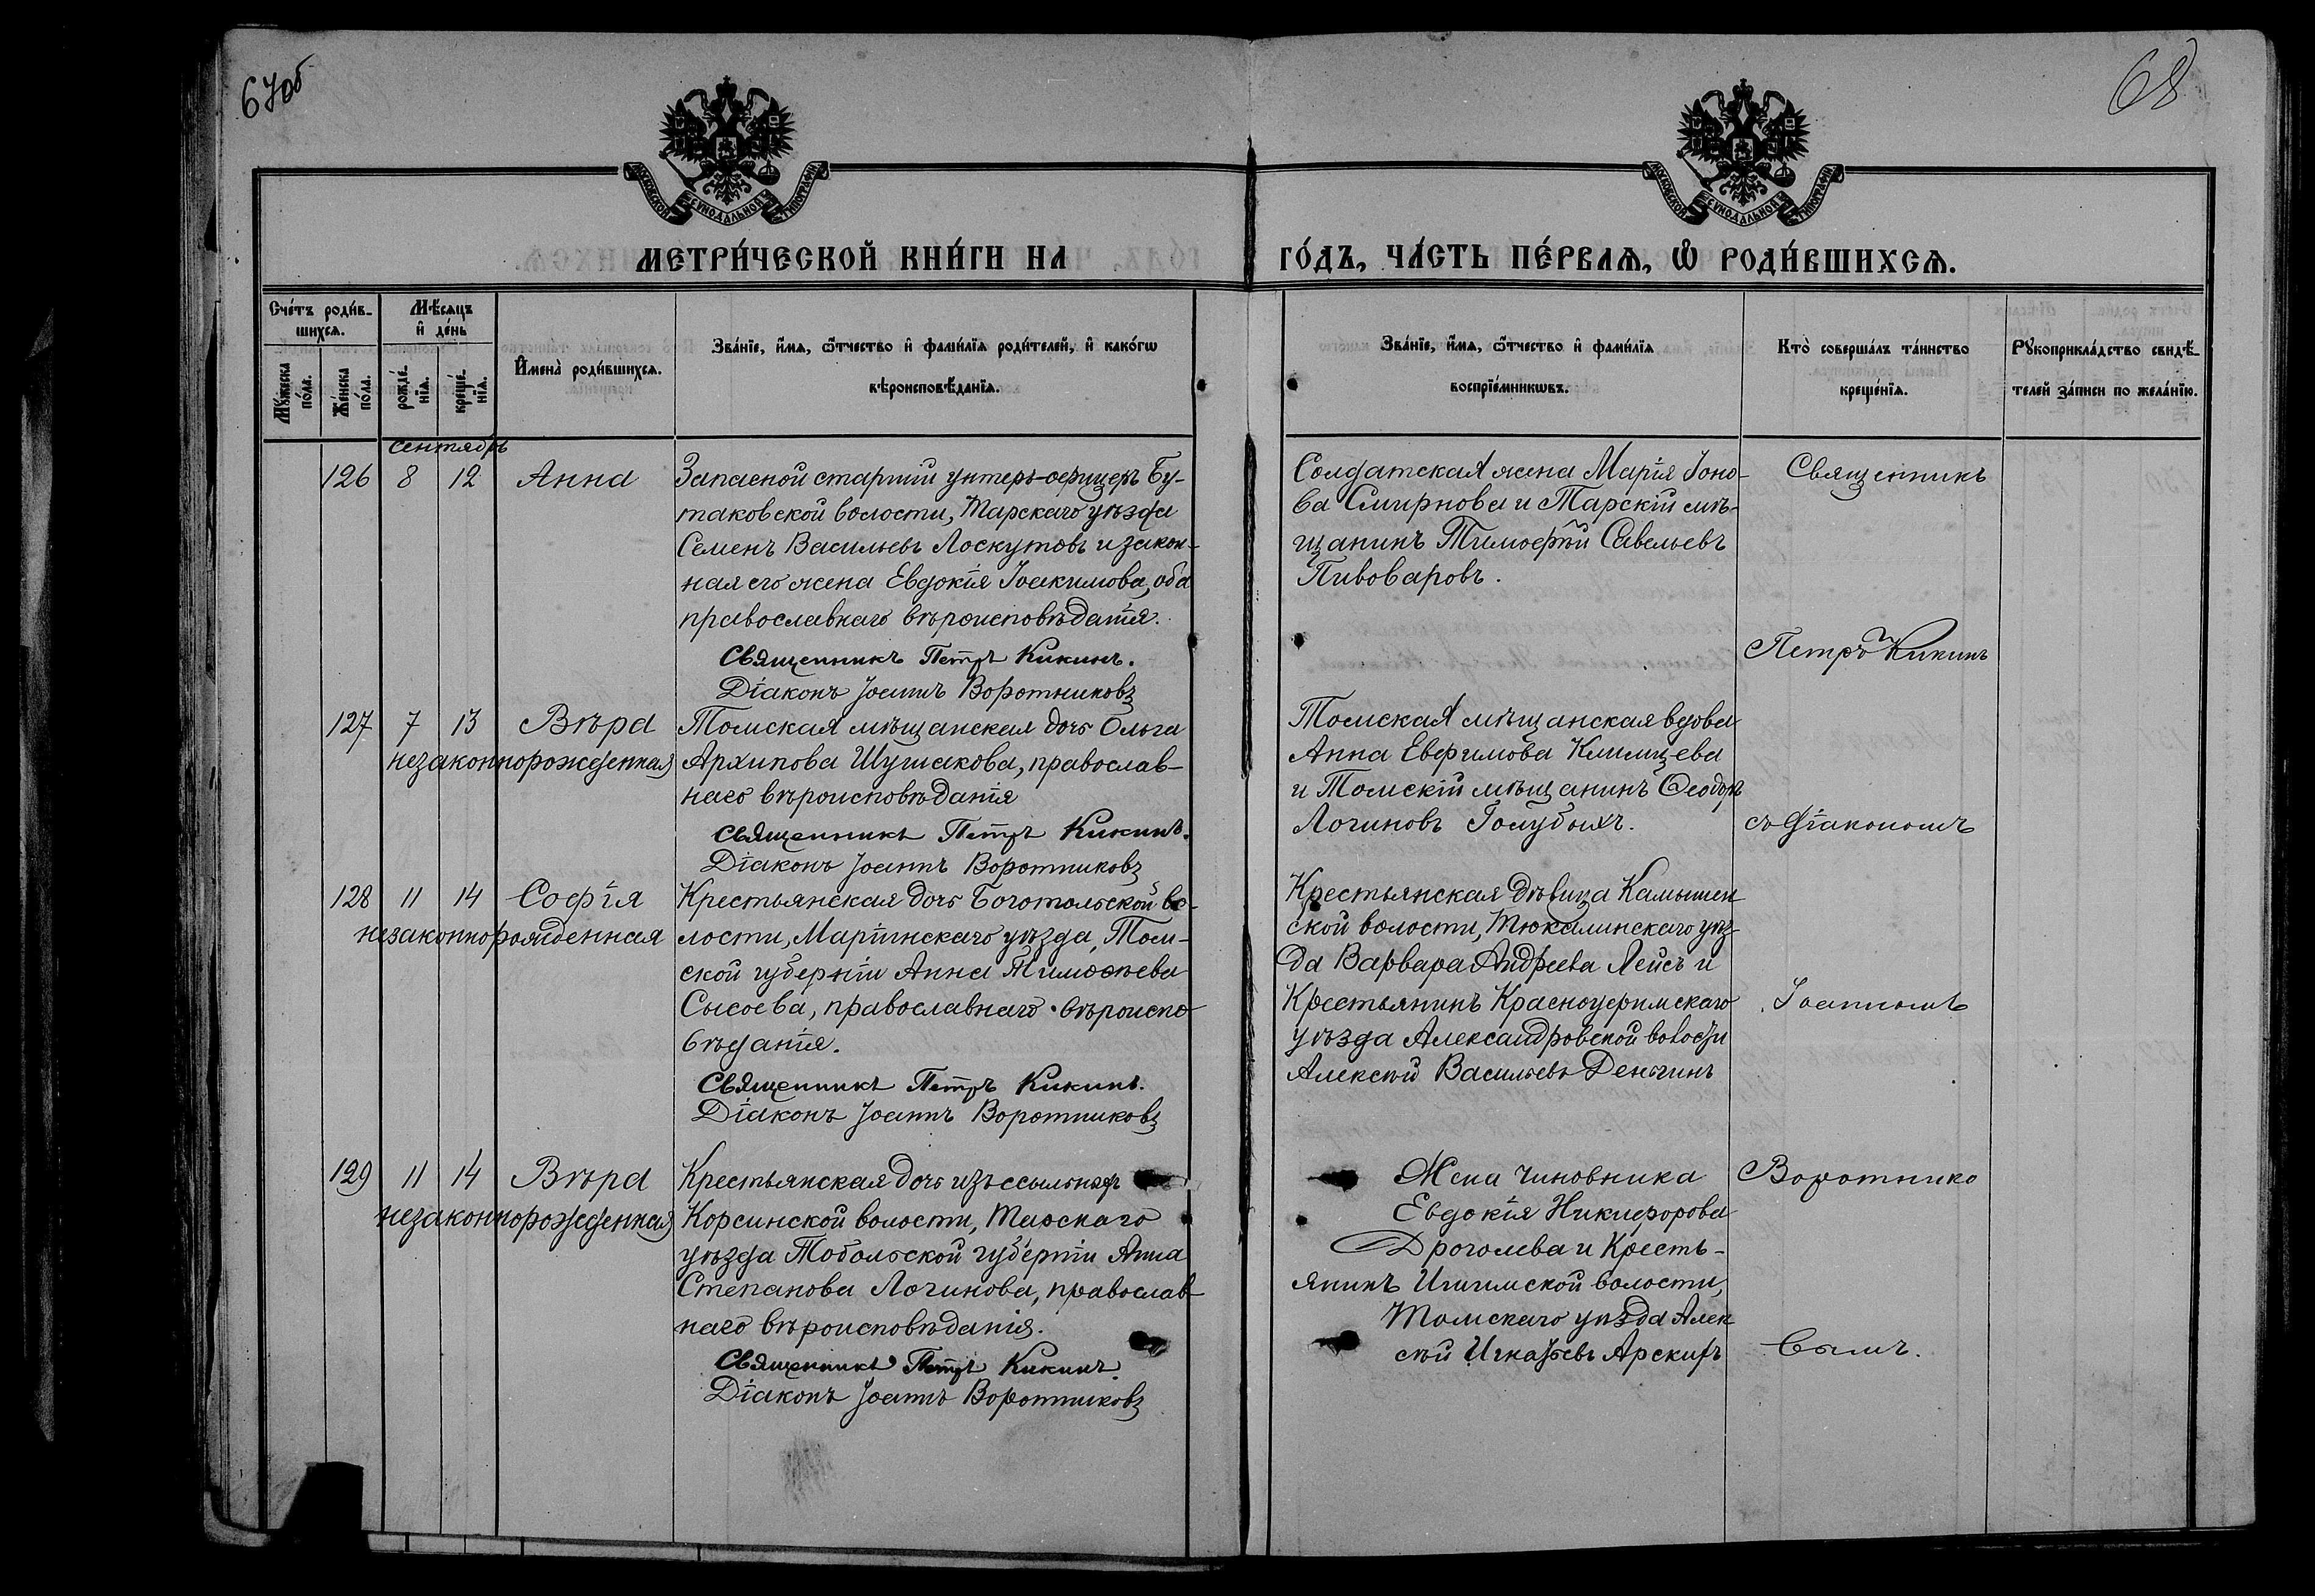 67об
68
МОСКОВСКОЙ СѴНОДАЛЬНОЙ ТИПОГРАФІИ
МОСКОВСКОЙ СѴНОДАЛЬНОЙ ТИПОГРАФІИ
МЕТРИ́ЧЕСКОЙ КНИ́ГИ НА
ГО́ДЪ, ЧА́СТЬ ПЕ́РВАѦ, Ѡ҆ РОДИ́ВШИХСѦ.
Сче́тъ роди́в-
шихсѧ.
Мѣ́сѧцъ
и҆ де́нь
Мꙋ́жеска
по́ла.
Же́нска
по́ла.
рожде́-
нїѧ.
креще́-
нїѧ.
И҆мена̀ роди́вшихсѧ.
Зва́нїе, и҆́мѧ, ѻ҆́тчество и҆ фами́лїѧ роди́телей, и҆ како́гѡ
вѣроисповѣ́данїѧ.
Зва́нїе, и҆́мѧ, ѻ҆́тчество и҆ фами́лїѧ
воспрїе́мникѡвъ.
Кто̀ соверша́лъ та́инство
креще́нїѧ.
Рꙋкоприкла́дство свидѣ́-
телей за́писи по жела́нїю.
Сентябрь
126 8 12 Анна
Запасной старшій унтеръ-офицеръ Бу-
таковской волости, Тарскаго уѣзда
Семенъ Васильевъ Лоскутовъ и закон-
ная его жена Евдокія Іоакимова, оба
православнаго вѣроисповѣданія.
Священникъ Петръ Кикинъ.
Діаконъ Іоаннъ Воротниковъ
Солдатская жена Марія Іоно-
ва Смирнова и Тарскій мѣ-
щанинъ Тимофѣй Савельевъ
Пивоваровъ.
Священникъ
Петръ Кикинъ
127 7 13 Вѣра
незаконнорожденная
Томская мѣщанская дочь Ольга
Архипова Шушакова, православ-
наго вѣроисповѣданія
Священникъ Петръ Кикинъ.
Діаконъ Іоаннъ Воротниковъ
Томская мѣщанская вдова
Анна Евфимова Климцева
и Томскій мѣщанинъ Ѳеодоръ
Логиновъ Голубыхъ.
съ діакономъ
128 11 14 Софія
незаконнорожденная
Крестьянская дочь Боготольской во-
лости, Маріинскаго уѣзда, Том-
ской губерніи Анна Тимоѳѣева
Сысоева, православнаго вѣроиспо
вѣданія.
Священникъ Петръ Кикинъ.
Діаконъ Іоаннъ Воротниковъ
Крестьянская дѣвица Камышен
ской волости, Тюкалинскаго уѣз-
да Варвара Андреева Лейсъ и
Крестьянинъ Красноуфимскаго
уѣзда Александровской волости
Алексѣй Васильевъ Деньгинъ
Іоанномъ
129 11 14 Вѣра
незаконнорожденная
Крестьянская дочь изъ ссыльныхъ
Корсинской волости, Тарскаго
уѣзда Тобольской губерніи Анна
Степанова Логинова, православ-
наго вѣроисповѣданія.
Священникъ Петръ Кикинъ.
Діаконъ Іоаннъ Воротниковъ
Жена чиновника
Евдокія Никифорова
Дроголева и Кресть-
янинъ Ишимской волости,
Томскаго уѣзда Алек
сѣй Игнатьевъ Арскихъ
Воротнико
вымъ.